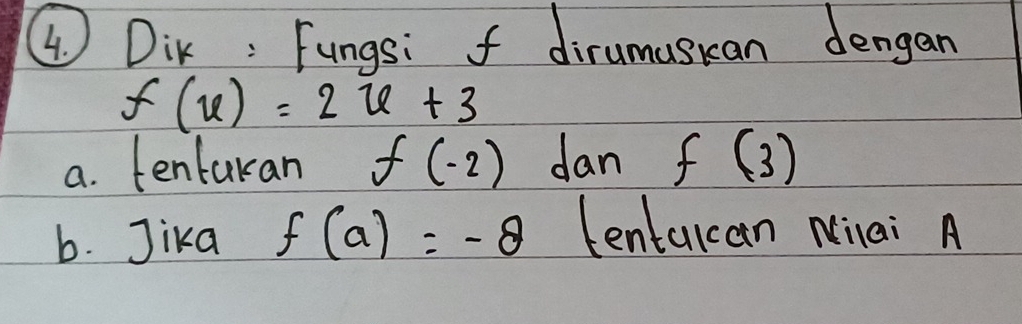 4. Dik : Fungsi f dirumuskan dengan
f (x) = 2x + 3
a. tentukan f (-2) dan f (3)
b. Jika f (a) = -8 tentukan Nilai A